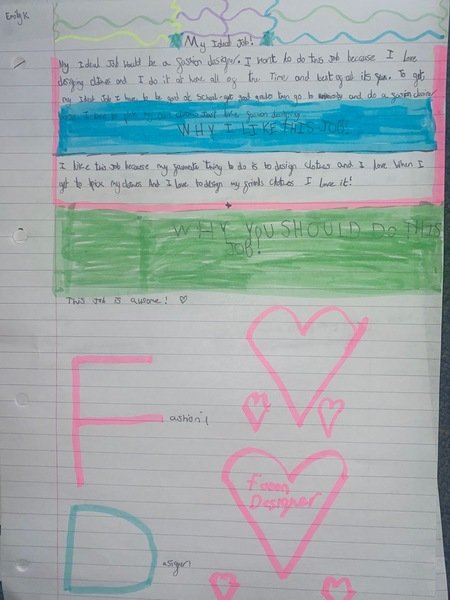 Emily K
My Ideal Job!
My Ideal Job would be a fashion designer. I want to do this job because I love
designing clothes and I do it at home all of the Time and best of all its fun. To get
my Ideal Job I have to be good at School get good grades then go to and do a fashion designer
WHY I LIKE THIS JOB!
I like this Job because my favourite thing to do is to design clothes and I love When I
get to pick my clothes And I love to design my friends clothes I love it!
WHY YOU SHOULD DO THIS
JOB!
This Job is awsome! ♡
F ashion!
Designer
D esigner!